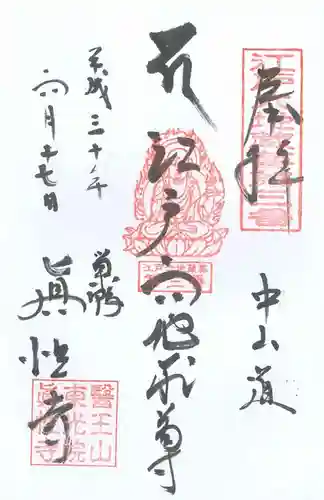 奉拝
中山道
江戸六地蔵尊
巣鴨
眞性寺
平成三十年
六月十七日
江戸六地蔵尊
醫王山
東光院
眞性寺